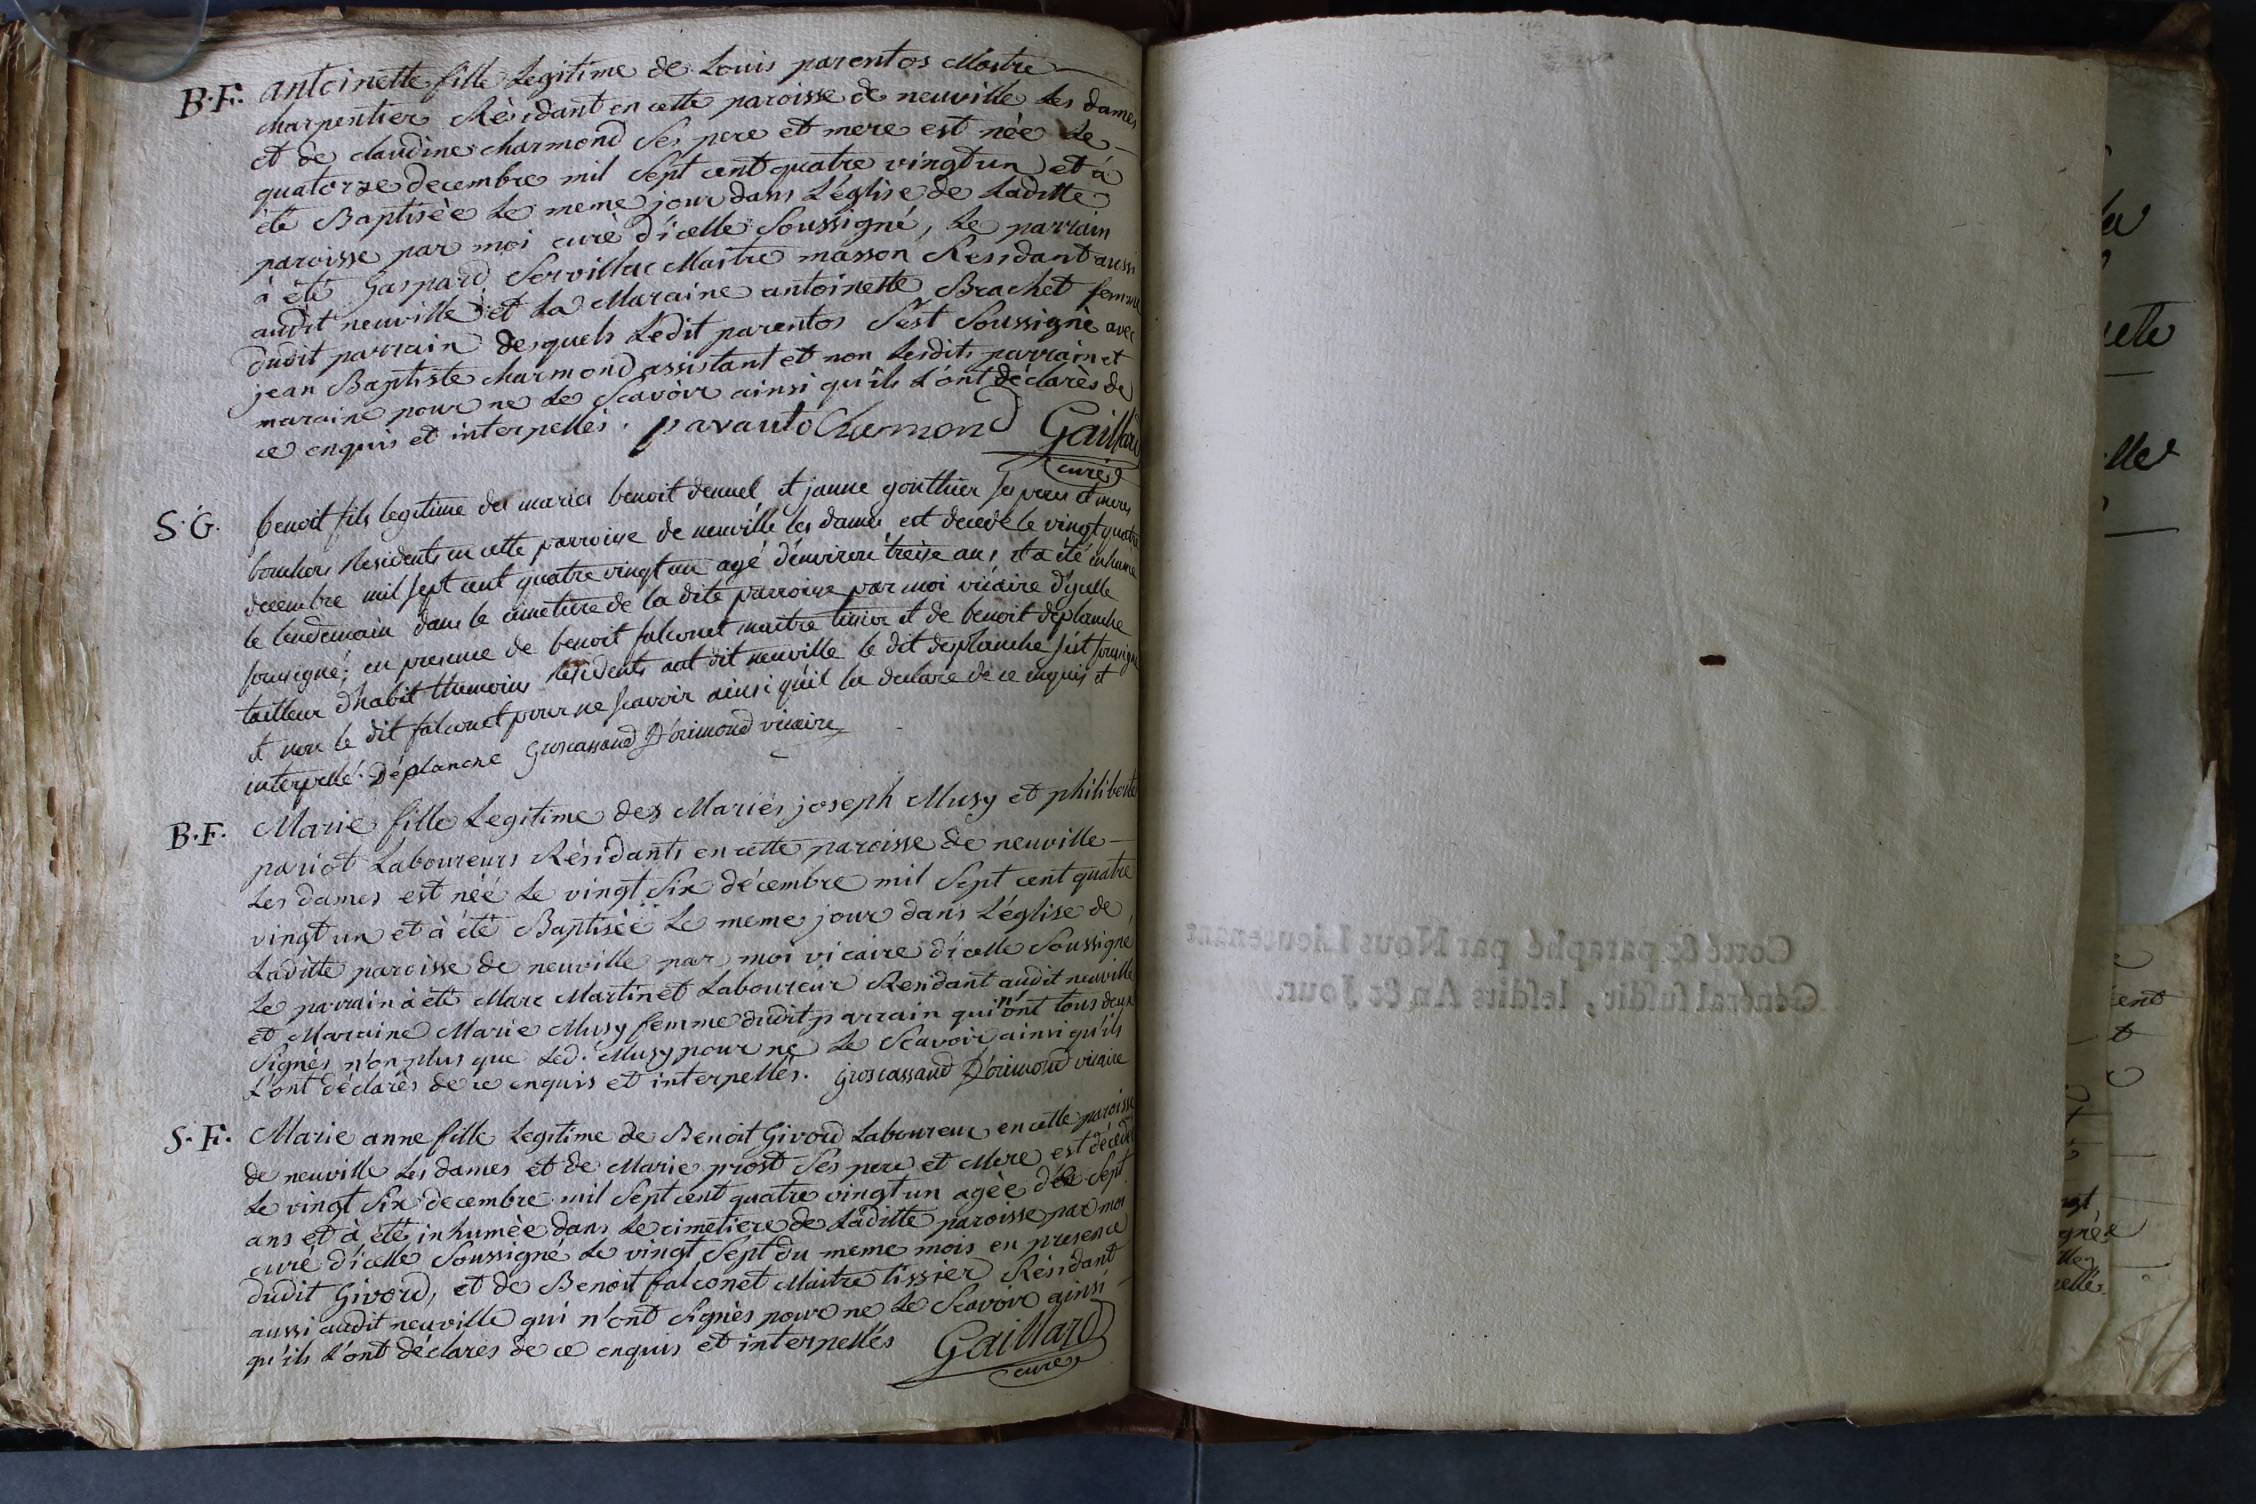 B.F. antoinette fille Legitime de Louis parentos Maitre
charpentier Résidant en cette paroisse de neuville Les dames
et de claudine charmond Ses pere et mere est née Le
quatorze decembre mil Sept cent quatre vingt un et à
été Baptisèe Le meme jour dans L'église de Laditte
paroisse par moi curè d'icelle Soussigné, Le parrain
à été Gaspard Servillac Maitre masson Résidant aussi
audit neuville et La Maraine antoinette Brachet femme
dudit parrain desquels Ledit parentos S'est Soussignè avec
jean Baptiste charmond assistant et non Lesdits parrain et
maraine pour ne Le Scavoir ainsi qu'ils L'ont déclarès de
ce enquis et interpellés. paranto Charmond Gaillard
curé
S.G. benoit fils legitime des mariés benoit deuuel et janne gonthier ses peres et meres
bouchers Residents en cette parroisse de neuville les dames est decedé le vingt quatre
decembre mil sept cent quatre vingt un agé d'environ treise ans et a été inhumé
le lendemain dans le cimetiere de la dite parroisse par moi vicaire d'ycelle
soussigné; en presence de benoit falconet maitre tissier et de benoit deplanche
tailleur d'habit themoins Résidents aut dit neuville le dit desplanche s'est soussigné
et non le dit falconet pour ne scavoir ainsi qu'il la declaré de ce enquis et
interpellé. Déplanche Groscassand D'orimond vicaire
B.F. Marie fille Legitime des Mariés joseph Musy et philiberte
pariot Laboureurs Résidants en cette paroisse de neuville
Les dames est néé Le vingt Six décembre mil Sept cent quatre
vingt un et à été Baptiséé Le meme jour dans L'église de
Laditte paroisse de neuville par moi vicaire d'icelle Soussigné
Le parrain à été Marc Martinet Laboureur Résidant audit neuville
et Marraine Marie Musy femme dudit parrain qui n'ont tous deux
Signés n'on plus que Led. Musy pour ne Le Scavoir ainsi qu'ils
L'ont déclarès de ce enquis et interpellés. Groscassand D'orimond vicaire
S.F. Marie anne fille Legitime de Benoit Givord Laboureur en cette paroisse
de neuville Les dames et de Marie prost Ses pere et Mere est décédé
Le vingt Six decembre mil Sept cent quatre vingt un agèe de Sept
ans et à été inhumèe dans Le cimetiere de Laditte paroisse par moi
curé d'icelle Soussigné Le vingt Sept du meme mois en presence
dudit Givord, et de Benoit falconet Maitre tissier Résidant
aussi audit neuville qui n'ont Signès pour ne Le Scavoir ainsi
qu'ils L'ont déclarès de ce enquis et interpellés Gaillard
curé
Cotté & paraphé par Nous Lieutenant
Général susdit, lesdits An & Jour.